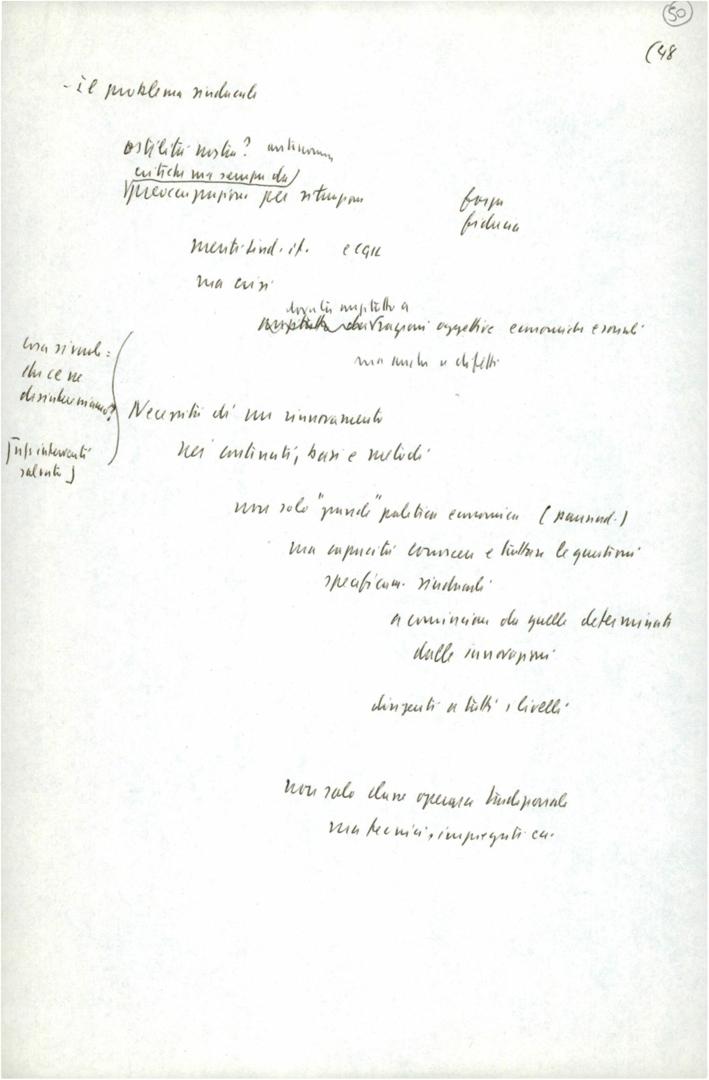 50
(48
- il problema sindacale
ostilità nostra? autonomia
critiche ma sempre da
preoccupazione per situazione
forza
fiducia
meriti sind. it. e CGIL
ma crisi
dovuta anzitutto a
anzitutto da ragioni oggettive economiche e sociali
ma anche a difetti
Cosa si vuole:
che ce ne
disinteressiamo?
interventi
salute]
Necessità di un rinnovamento
nei contenuti, basi e metodi
non solo "grande" politica economica
ma capacità conoscere e trattare le questioni
specificam. sindacali
a cominciare da quelle determinate
dalle innovazioni
dirigenti a tutti i livelli
non solo classe operaia tradizionale
ma tecnici, impiegati ecc.